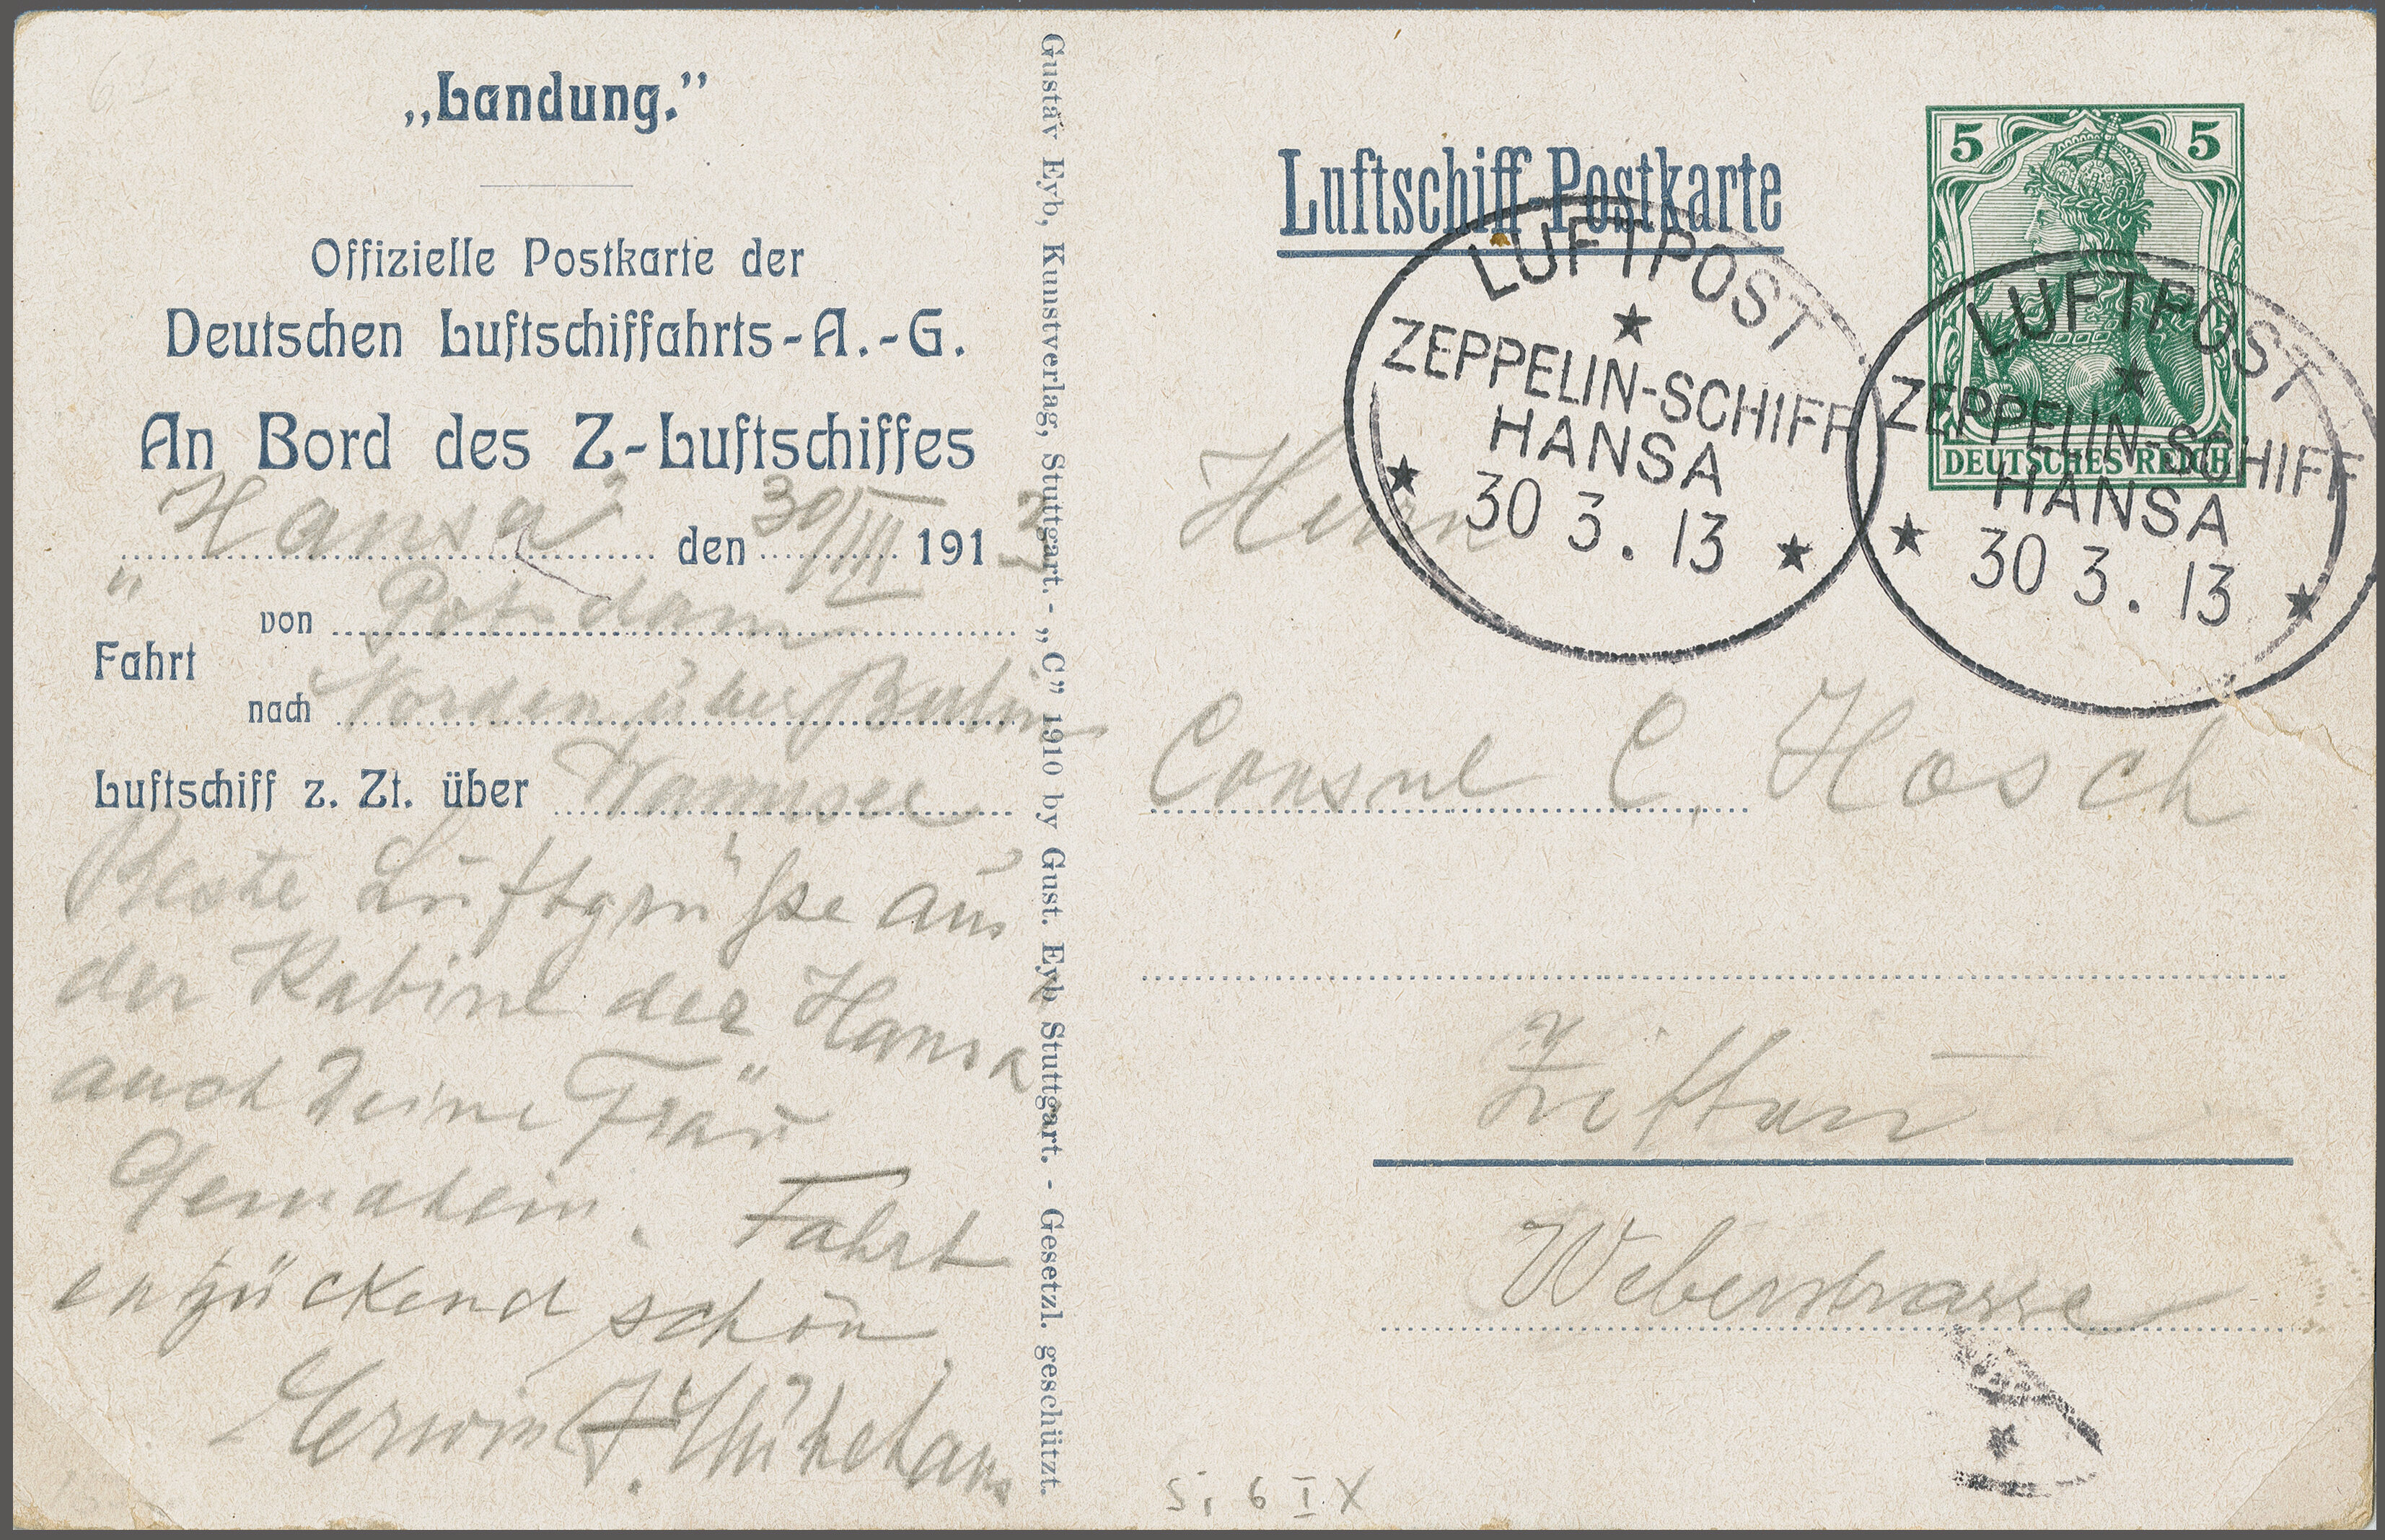 „Landung.”
Offizielle Postkarte der
Deutschen Luftschiffahrts-A.-G.
An Bord des Z-Luftschiffes
„Hansa” den 30/III 1913
Fahrt
von Potsdam
nach Norden über Berlin
Luftschiff z. Zt. über Wannsee
Beste Luftgrüße aus
der Kabine der Hansa
auch Deine Frau
Gemahlin. Fahrt
entzückend schön
Erwin
Gustav Eyb, Kunstverlag, Stuttgart. - „C” 1910 by Gust. Eyb Stuttgart. - Gesetzl. geschützt.
Luftschiff-Postkarte
5 5
DEUTSCHES REICH
LUFTPOST
ZEPPELIN-SCHIFF
HANSA
30 3. 13
LUFTPOST
ZEPPELIN-SCHIFF
HANSA
30 3. 13
Herrn
Consul C. Hosch
Zittau
Weberstrasse
Si 6 I X